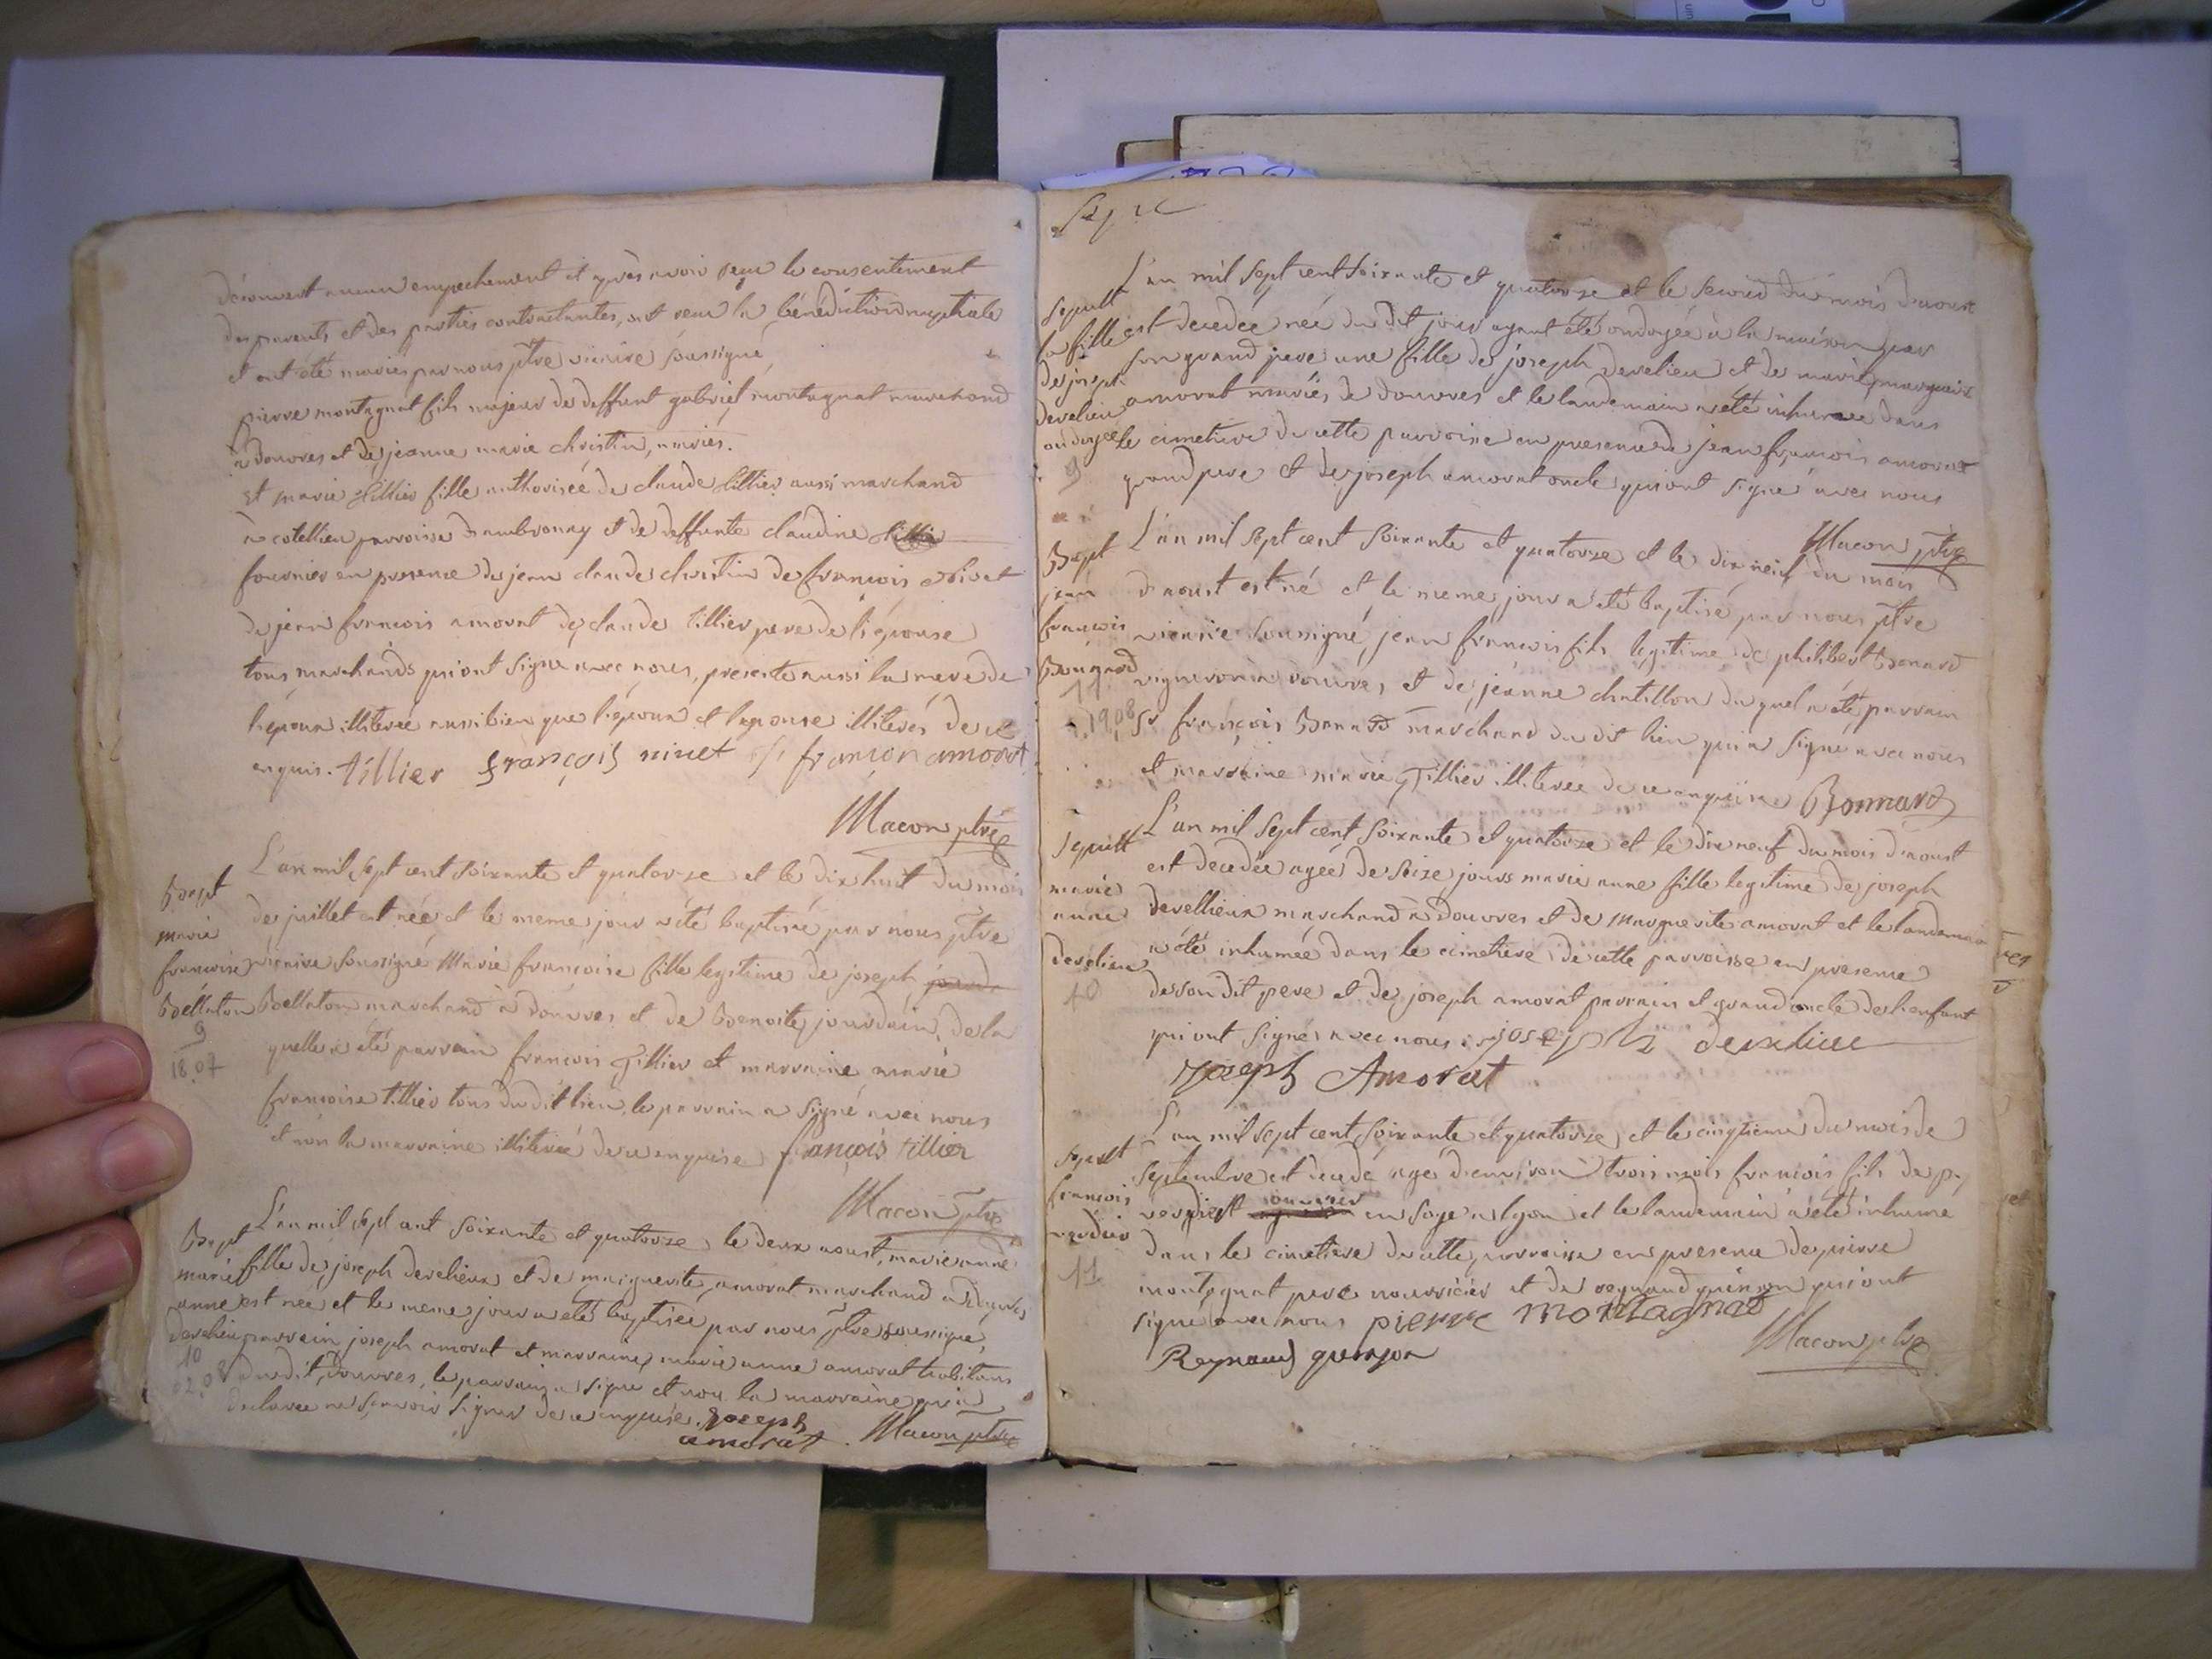 découvert aucun empechement et après avoir reçu le consentement
des parents et des parties contractantes, ont reçu la bénédiction nuptiale
et ont été mariés par nous ptre vicaire soussigné,
pierre montagnat fils majeur de deffunt gabriel montagnat marchand
a douvres et de jeanne marie christin, mariés.
et marie tillier fille authorisée de claude tillier aussi marchand
a cotellieu parroisse d'ambronay et de deffunte claudine
fournier en presence de jean claude christin de françois nivet
de jean francois amorat de claude tillier pere de l'épouse
tous marchands qui ont signé avec nous, presente aussi la mere de
l'époux illiterée aussi bien que l'époux et l'epouse illiterés de ce
enquis. tillier françois nivet j françon amorat
Macon ptre
Bapt
marie
francoise
Bellaton
9
18.07
L'an mil sept cent soixante et quatorze et le dix huit du mois
de juillet est née et le meme jour a été baptisée par nous ptre
vicaire soussigné Marie francoise fille legitime de joseph
Bellaton marchand à douvres et de Benoite jourdain, de la
quelle a été parrain francois Tillier et marraine marie
francoise tillier tous du dit lieu, le parrain a signé avec nous
et non la marraine illiterée de ce enquise françois tillier
Macon ptre
Bapt
marie
anne
develieu
10
02.08
L'an mil sept cent soixante et quatorze, le deux aoust, marie anne
fille de joseph develieux et de marguerite amorat marchand a douvres
est née et le meme jour a été baptisée par nous ptre soussigné,
parrain joseph amorat et marraine marie anne amorat habitans
du dit douvres, le parrain a signé et non la marraine qui a
declaree ne scavoir signer de ce enquise. joseph
amorat. Macon ptre
Sepult
la fille
de joseph
develieu
ondoyée
9
L'an mil sept cent soixante et quatorze et le second du mois d'aoust
est decedée née du dit jour ayant été ondoyée à la maison par
son grand pere une fille de joseph develieu et de marie marguerite
amorat mariés de douvres et le landemain a été inhumée dans
le cimetiere de cette parroisse en presence de jean françois amorat
grand pere et de joseph amorat oncle qui ont signé avec nous
Macon ptre
Bapt
jean
françois
Bonnard
11
19.08
L'an mil sept cent soixante et quatorze et le dix neuf du mois
d'aoust est né et le meme jour a été baptisé par nous ptre
vicaire soussigné, jean françois fils legitime de philibert Bonard
vigneron à douvres et de jeanne chatillon du quel a été parrain
sr françois Bonard marchand du dit lieu qui a signé avec nous
et marraine marie Tillier illiterée de ce enquise Bonnard
Sepult
marie
anne
develieu
10
L'an mil sept cent soixante et quatorze et le dix neuf du mois d'aoust
est decedée agée de seize jours marie anne fille legitime de joseph
devellieux marchand à douvres et de Marguerite amorat et le landemain
a été inhumée dans le cimetiere de cette parroisse en presence
de son dit pere et de joseph amorat parrain et grand oncle de l'enfant
qui ont signés avec nous joseph develieu
joseph Amorat
Sepult
francois
verdier
11
L'an mil sept cent soixante et quatorze et le cinqieme du mois de
septembre est decedé agé d'environ trois mois françois fils de
ouvrier
en soye a lyon et le landemain a été inhumé
dans le cimetiere de cette parroisse en presence de pierre
montagnat pere nourricier et de reynaud guinson qui ont
signé avec nous pierre montagnat
Reynaud
Macon ptre